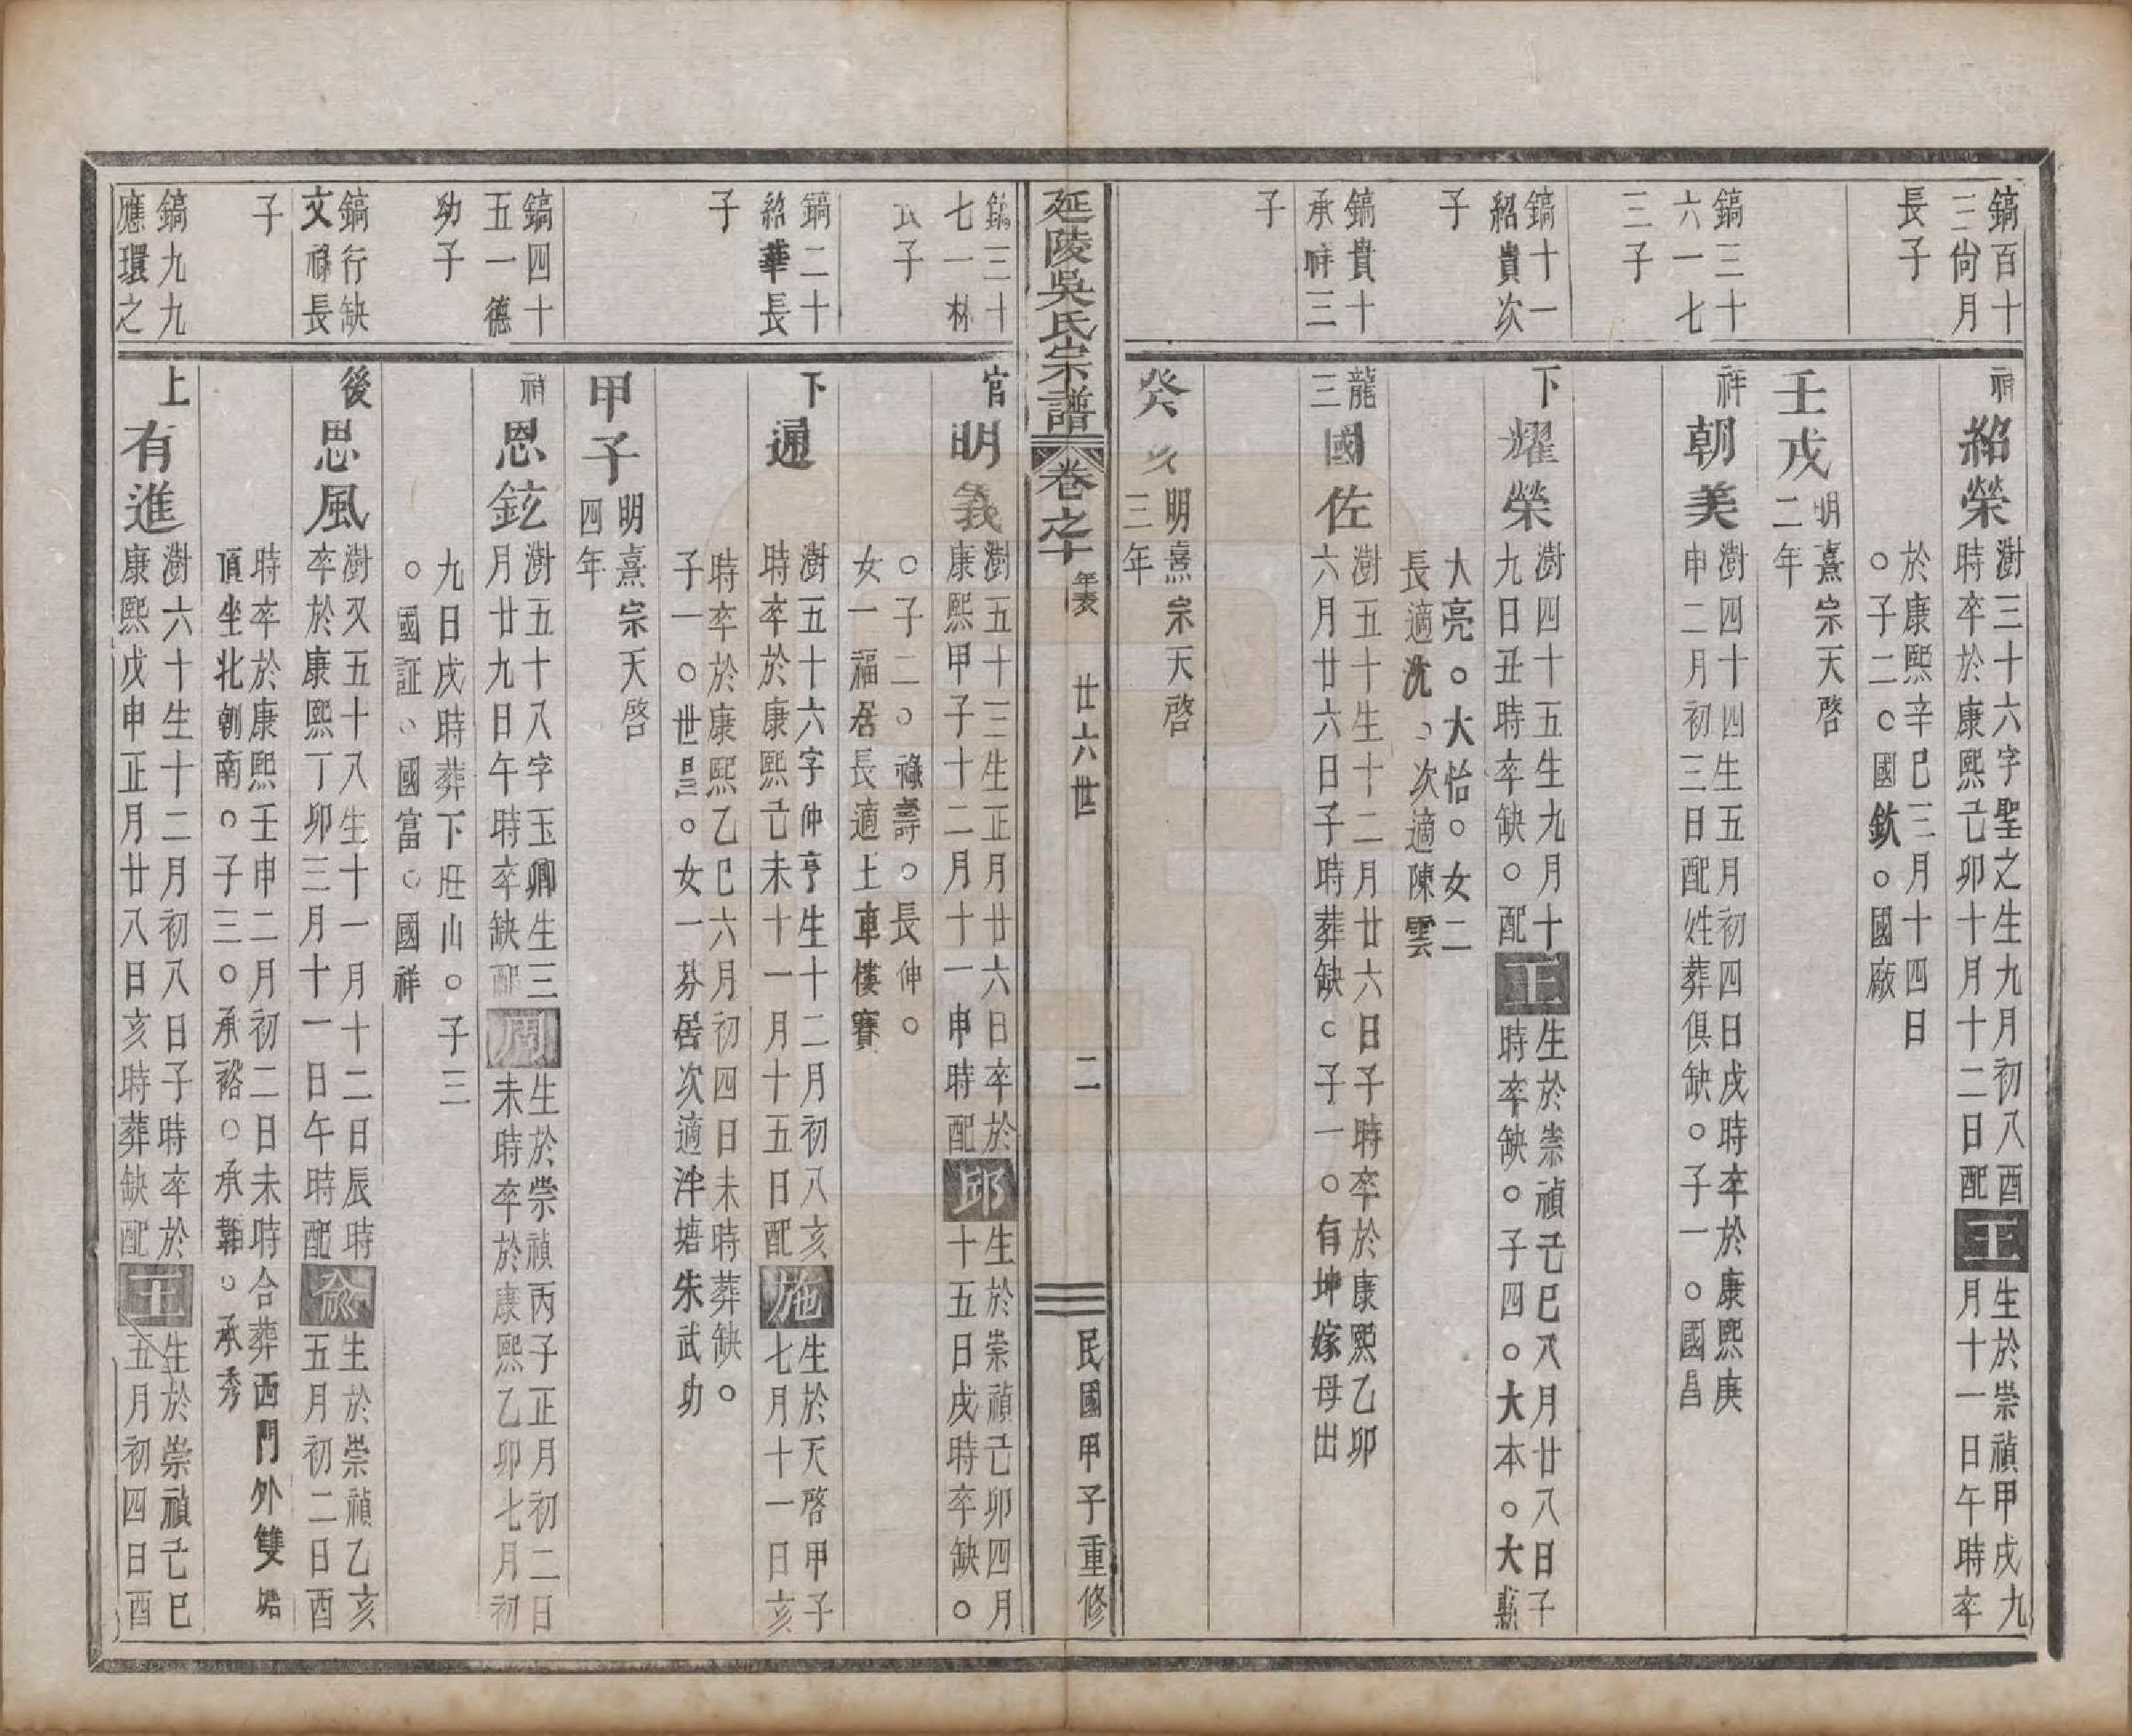 鎬百十
三尙月
長子
祥
紹榮
澍三十六字聖之生九月初八酉
時卒於康熙己卯十月十二日配
王
生於崇禎甲戌九
月十一日午時卒
於康熙辛巳三月十四日
○子二○國欽○國廠
壬戌
明熹宗天啓
二年
鎬三十
六一七
三子
祥
朝美
澍四十四生五月初四日戌時卒於康熙庚
申二月初三日配姓葬俱缺○子一○國昌
鎬十一
紹貴次
子
下
耀榮
澍四十五生九月十
九日丑時卒缺○配
王
生於崇禎己巳八月廿八日子
時卒缺○子四○大本○大
大亮○大怡○女二
長適沈○次適陳雲
鎬貴十
承祥三
子
龍三
國佐
澍五十生十二月廿六日子時卒於康熙乙卯
六月廿六日子時葬缺○子一○有坤嫁母出
癸亥
明熹宗天啓
三年
延陵吳氏宗譜
卷之十
年表
廿六世
二
民國甲子重修
鎬三十
七一林
長子
官
明義
澍五十三生正月廿六日卒於
康熙甲子十二月十一申時配
邱
生於崇禎己卯四月
十五日戌時卒缺○
○子二○祿壽○長伸○
女一福居長適上車樓賽
鎬二十
紹華長
子
下
通
澍五十六字仲亨生十二月初八亥
時卒於康熙己未十一月十五日配
施
生於天啓甲子
七月十一日亥
時卒於康熙乙巳六月初四日未時葬缺○
子一○世昆○女一芬居次適泮塘朱武功
甲子
明熹宗天啓
四年
鎬四十
五一德
功子
祥
恩鉉
澍五十八字玉卿生三
月廿九日午時卒缺配
周
生於崇禎丙子正月初二日
未時卒於康熙乙卯七月初
九日戌時葬下旺山○子三
○國証○國富○國祥
鎬行缺
文祿長
子
後
思風
澍又五十八生十一月十二日辰時
卒於康熙丁卯三月十一日午時配
俞
生於崇禎乙亥
五月初二日酉
時卒於康熙壬申二月初二日未時合葬西門外雙塘
頂坐北朝南○子三○承裕○承翰○承秀
鎬九九
應環之
上
有進
澍六十生十二月初八日子時卒於
康熙戊申正月廿八日亥時葬缺配
王
生於崇禎己巳
五月初四日酉